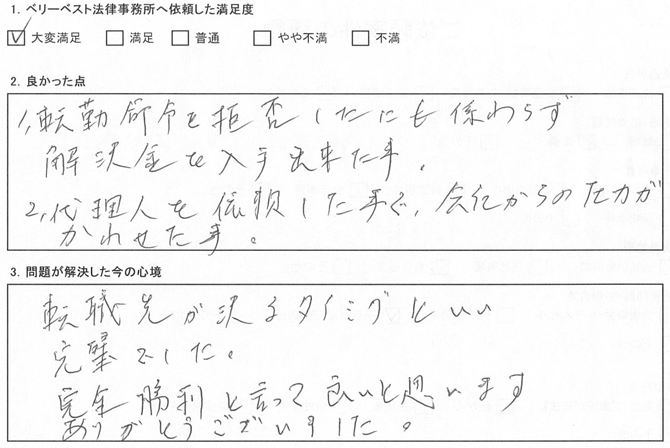 1. ベリーベスト法律事務所へ依頼した満足度
☑ 大変満足 □ 満足 □ 普通 □ やや不満 □ 不満
2. 良かった点
1, 転勤命令を拒否したにも係わらず
解決金を入手出来た事。
2, 代理人を依頼した事で、会社からの圧力が
かわせた事。
3. 問題が解決した今の心境
転職先が決るタイミングといい
完璧でした。
完全勝利と言って良いと思います
ありがとうございました。